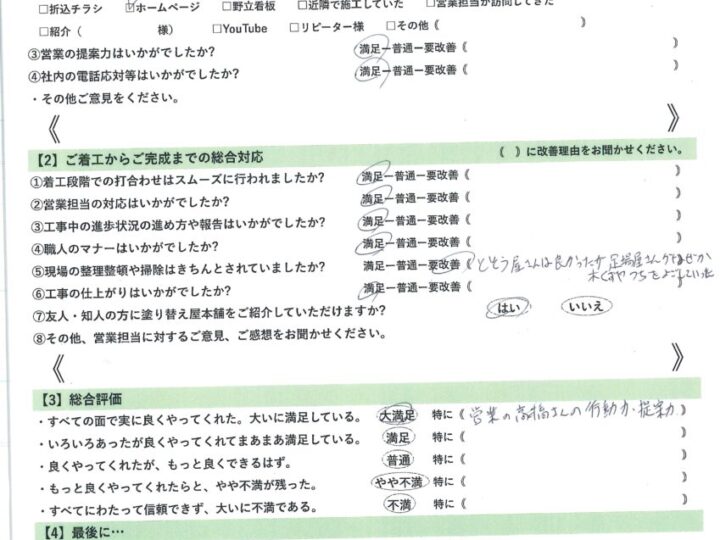 □折込チラシ ☑ホームページ □野立看板 □近隣で施工していた □営業担当が訪問してきた
□紹介（ 様） □YouTube □リピーター様 □その他（ ）
③営業の提案力はいかがでしたか? 満足ー普通ー要改善《 》
④社内の電話応対等はいかがでしたか? 満足ー普通ー要改善《 》
・その他ご意見をください。
《 》
【2】ご着工からご完成までの総合対応 《 》に改善理由をお聞かせください。
①着工段階での打合わせはスムーズに行われましたか? 満足ー普通ー要改善《 》
②営業担当の対応はいかがでしたか? 満足ー普通ー要改善《 》
③工事中の進歩状況の進め方や報告はいかがでしたか? 満足ー普通ー要改善《 》
④職人のマナーはいかがでしたか? 満足ー普通ー要改善《 》
⑤現場の整理整頓や掃除はきちんとされていましたか? 満足ー普通ー要改善《 とそう屋さんは良かったが 足場屋さんがなぜか
木くずやつちをよごしていった
⑥工事の仕上がりはいかがでしたか? 満足ー普通ー要改善《 》
⑦友人・知人の方に塗り替え屋本舗をご紹介していただけますか? はい いいえ
⑧その他、営業担当に対するご意見、ご感想をお聞かせください。
《 》
【3】総合評価
・すべての面で実に良くやってくれた。大いに満足している。 大満足 特に《 営業の高橋さんの行動力・提案力 》
・いろいろあったが良くやってくれてまあまあ満足している。 満足 特に《 》
・良くやってくれたが、もっと良くできるはず。 普通 特に《 》
・もっと良くやってくれたらと、やや不満が残った。 やや不満 特に《 》
・すべてにわたって信頼できず、大いに不満である。 不満 特に《 》
【4】最後に…